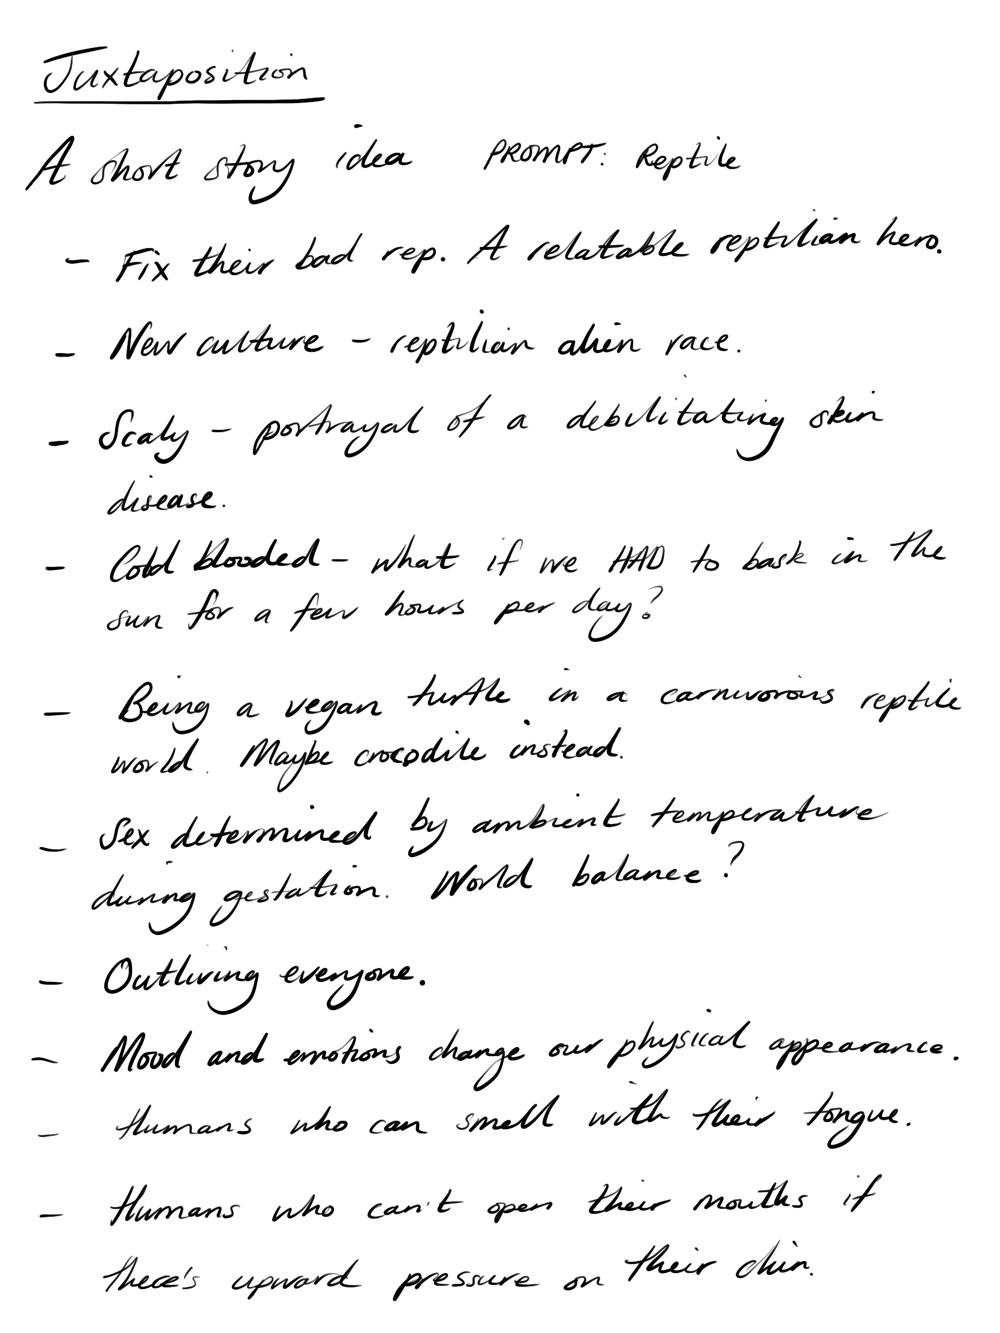 Juxtaposition
A short story idea PROMPT: Reptile
- Fix their bad rep. A relatable reptilian hero.
- New culture - reptilian alien race.
- Scaly - portrayal of a debilitating skin
disease.
- Cold blooded - what if we HAD to bask in the
sun for a few hours per day?
- Being a vegan turtle in a carnivorous reptile
world. Maybe crocodile instead.
- Sex determined by ambient temperature
during gestation. World balance?
- Outliving everyone.
- Mood and emotions change our physical appearance.
- Humans who can smell with their tongue.
- Humans who can't open their mouths if
there's upward pressure on their chin.